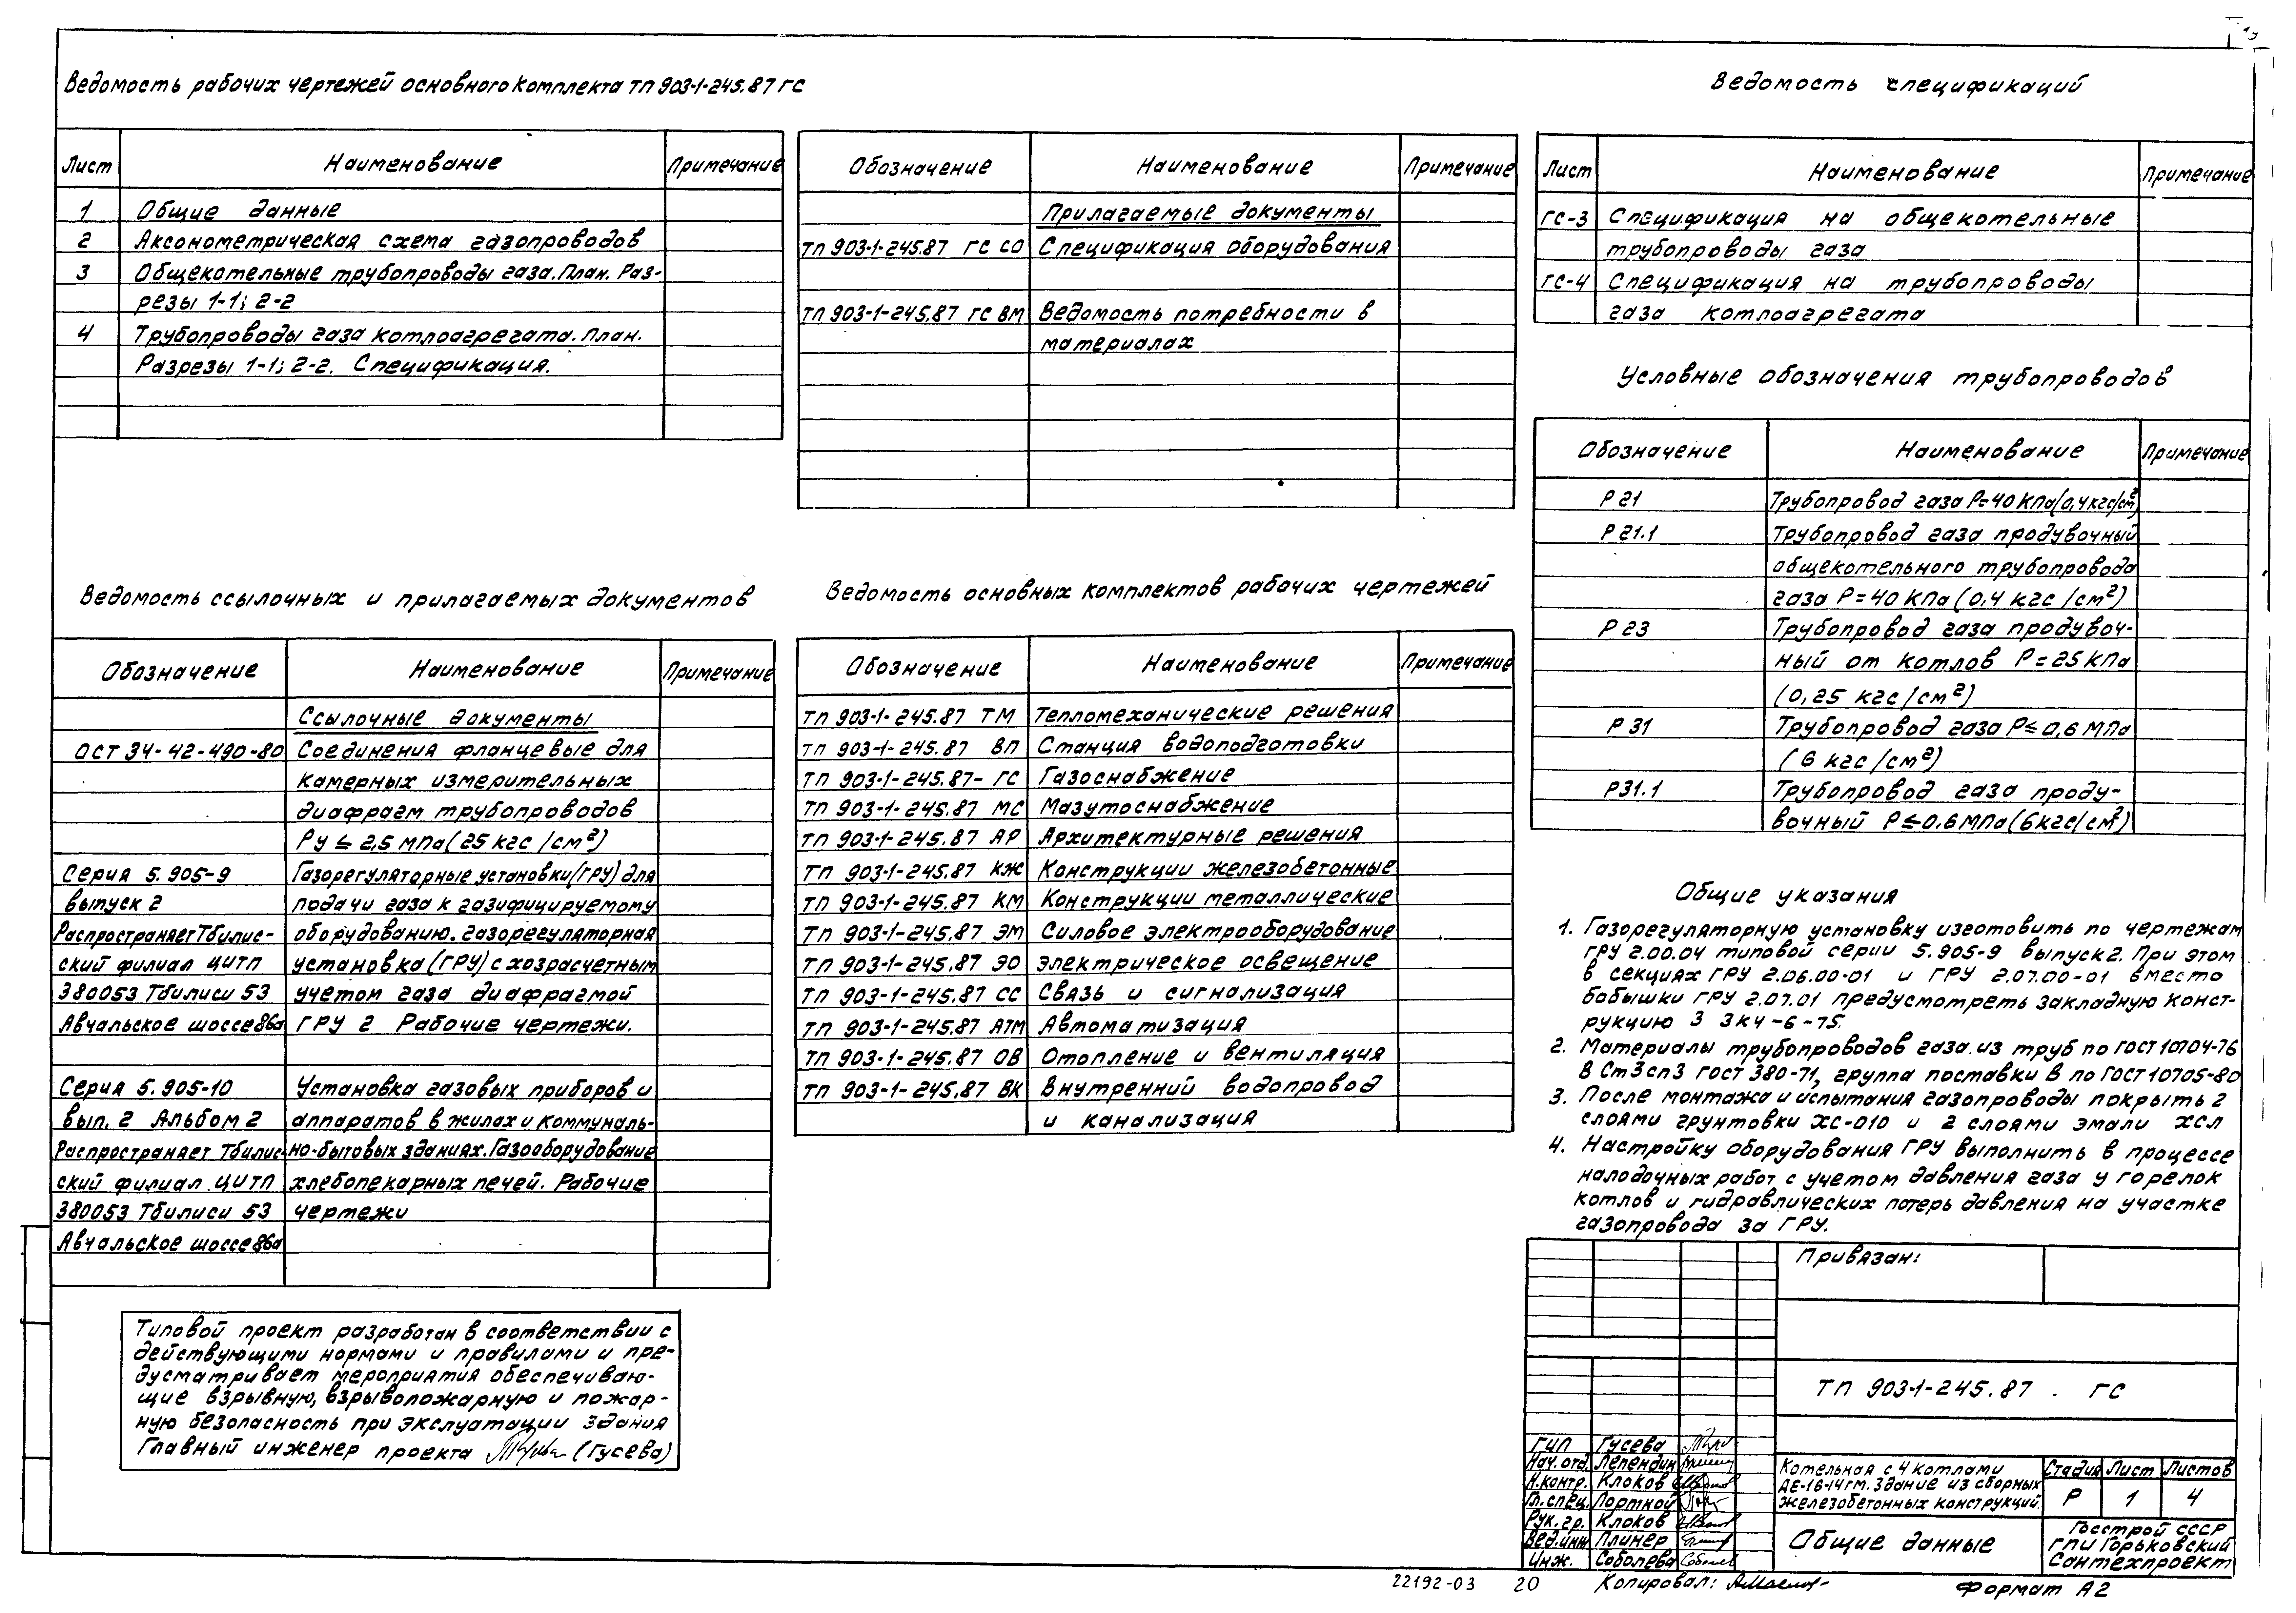 Ведомость рабочих чертежей основного комплекта ТП 903-1-245.87 ГС
Лист Наименование Примечание
1 Общие данные
2 Аксонометрическая схема газопроводов
3 Общекотельные трубопроводы газа. План. Раз-
резы 1-1; 2-2
4 Трубопроводы газа котлоагрегата. План.
Разрезы 1-1; 2-2. Спецификация.
Обозначение Наименование Примечание
Прилагаемые документы
ТП 903-1-245.87 ГС СО Спецификация оборудования
ТП 903-1-245.87 ГС ВМ Ведомость потребности в
материалах
Ведомость спецификаций
Лист Наименование Примечание
ГС-3 Спецификация на общекотельные
трубопроводы газа
ГС-4 Спецификация на трубопроводы
газа котлоагрегата
Условные обозначения трубопроводов
Обозначение Наименование Примечание
Р 21 Трубопровод газа Р=40 КПа (0,4 кгс/см²)
Р 21.1 Трубопровод газа продувочный
общекотельного трубопровода
газа Р=40 КПа (0,4 кгс/см²)
Р 23 Трубопровод газа продувоч-
ный от котлов Р=25 КПа
(0,25 кгс/см²)
Р 31 Трубопровод газа Р≤0,6 МПа
(6 кгс/см²)
Р31.1 Трубопровод газа проду-
вочный Р≤0.6 МПа (6кгс/см²)
Ведомость ссылочных и прилагаемых документов
Обозначение Наименование Примечание
Ссылочные документы
ОСТ 34-42-490-80 Соединения фланцевые для
камерных измерительных
диафрагм трубопроводов
Ру ≤ 2,5 МПа (25 кгс/см²)
Серия 5.905-9 Газорегуляторные установки (ГРУ) для
выпуск 2 подачи газа к газифицируемому
Распространяет Тбилис- оборудованию. газорегуляторная
ский филиал ЦИТП установка (ГРУ) с хозрасчетным
380053 Тбилиси 53 учетом газа диафрагмой
Авчальское шоссе 86а ГРУ 2 Рабочие чертежи.
Серия 5.905-10 Установка газовых приборов и
вып. 2 Альбом 2 аппаратов в жилах и коммуналь-
Распространяет Тбилис- но-бытовых зданиях. Газооборудование
ский филиал ЦИТП хлебопекарных печей. Рабочие
380053 Тбилиси 53 чертежи
Авчальское шоссе 86а
Ведомость основных комплектов рабочих чертежей
Обозначение Наименование Примечание
ТП 903-1-245.87 ТМ Тепломеханические решения
ТП 903-1-245.87 ВП Станция водоподготовки
ТП 903-1-245.87- ГС Газоснабжение
ТП 903-1-245.87 МС Мазутоснабжение
ТП 903-1-245.87 АР Архитектурные решения
ТП 903-1-245.87 КЖ Конструкции железобетонные
ТП 903-1-245.87 КМ Конструкции металлические
ТП 903-1-245.87 ЭМ Силовое электрооборудование
ТП 903-1-245.87 ЭО Электрическое освещение
ТП 903-1-245.87 СС Связь и сигнализация
ТП 903-1-245.87 АТМ Автоматизация
ТП 903-1-245.87 ОВ Отопление и вентиляция
ТП 903-1-245.87 ВК Внутренний водопровод
и канализация
Общие указания
1. Газорегуляторную установку изготовить по чертежам
ГРУ 2.00.04 типовой серии 5.905-9 выпуск 2. При этом
в секциях ГРУ 2.06.00-01 и ГРУ 2.07.00-01 вместо
бобышки ГРУ 2.07.01 предусмотреть закладную конст-
рукцию 3 ЗК4-6-75.
2. Материалы трубопроводов газа из труб по ГОСТ 10704-76
В Ст3сп3 ГОСТ 380-71, группа поставки В по ГОСТ 10705-80
3. После монтажа и испытания газопроводы покрыть 2
слоями грунтовки ХС-010 и 2 слоями эмали ХСЛ
4. Настройку оборудования ГРУ выполнить в процессе
налодочных работ с учетом давления газа у горелок
котлов и гидравлических потерь давления на участке
газопровода за ГРУ.
Типовой проект разработан в соответствии с
действующими нормами и правилами и пре-
дусматривает мероприятия обеспечиваю-
щие взрывную, взрывопожарную и пожар-
ную безопасность при эксплуатации здания
Главный инженер проекта (Гусева)
Привязан:
ТП 903-1-245.87 . ГС
ГИП Гусева
Нач. отд. Лепендин
Н.контр. Клоков
Гл.спец. Портной
Рук. гр. Клоков
Вед.инж Плинер
Инж. Соболева
Котельная с 4 котлами
ДЕ-16-14гм. Здание из сборных
железобетонных конструкций.
Стадия Лист Листов
Р 1 4
Общие данные
Госстрой СССР
ГПИ Горьковский
Сантехпроект
22192-03 20 Копировал:
Формат А2